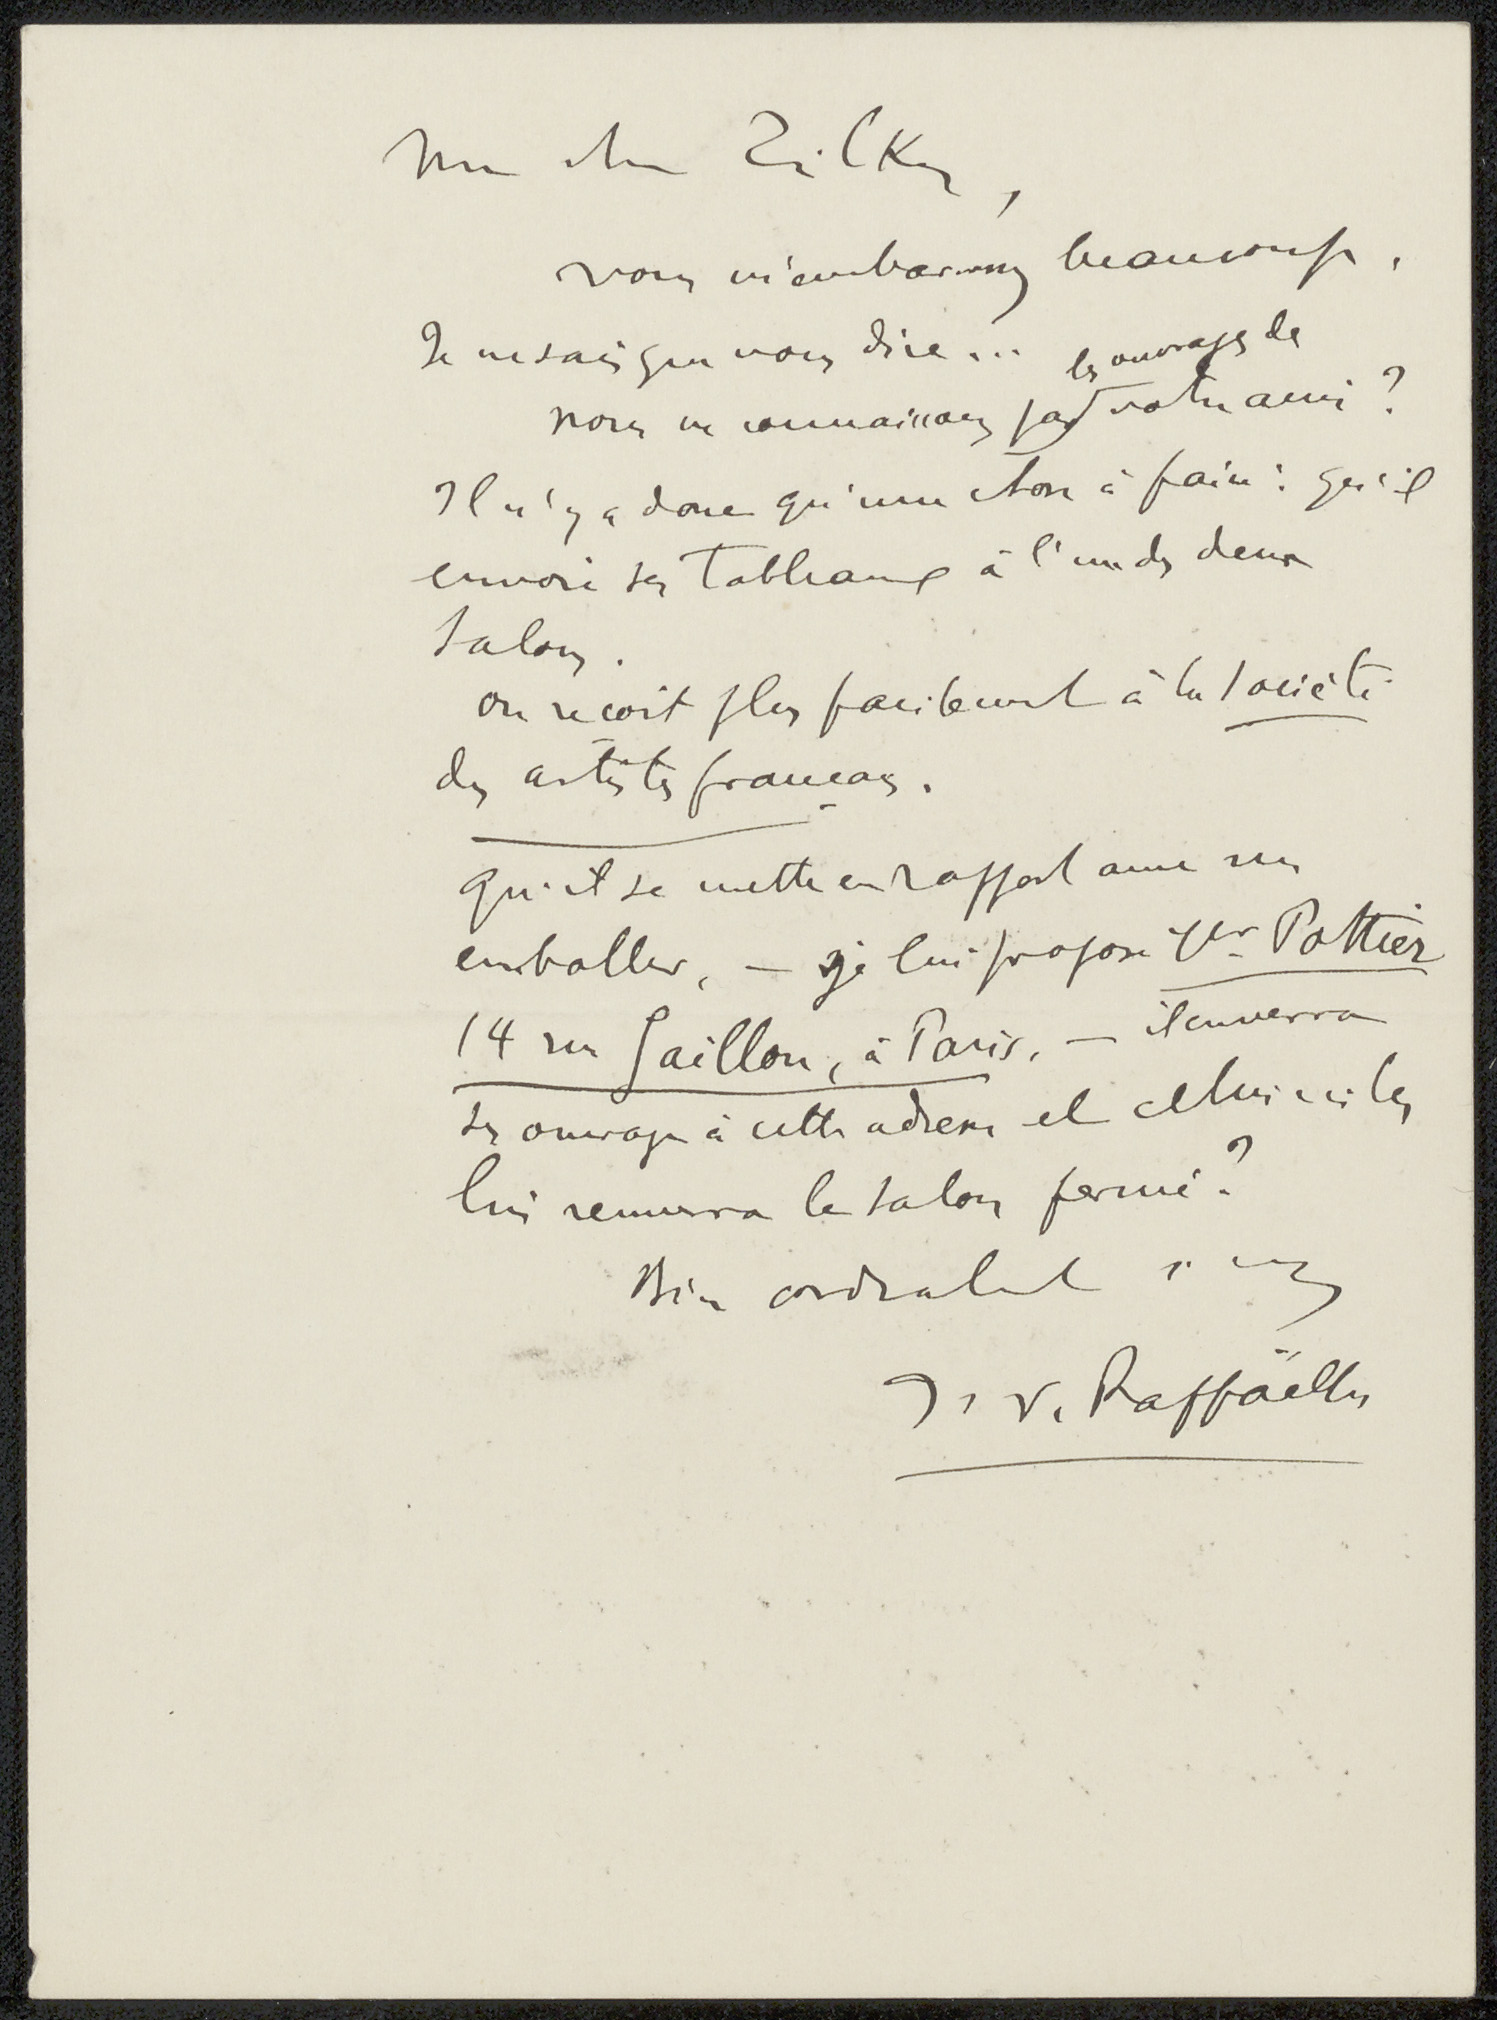 Mon cher Zilcken,
vous m'embarrassez beaucoup.
Je ne sais que vous dire...
nous ne connaissons pas les ouvrages de votre ami?
Il n'y a donc qu'une chose à faire: qu'il
envoie ses Tableaux à l'un des deux
Salons.
on reçoit plus facilement à la Société
des artistes français.
qu'il se mette en rapport avec un
emballeur, — je lui propose Mr Pottier
14 rue Gaillon, à Paris. — il enverra
ses ouvrages à cette adresse et celui-ci les
lui renverra le salon fermé?
Bien cordialement à vous
J. F. Raffaëlli